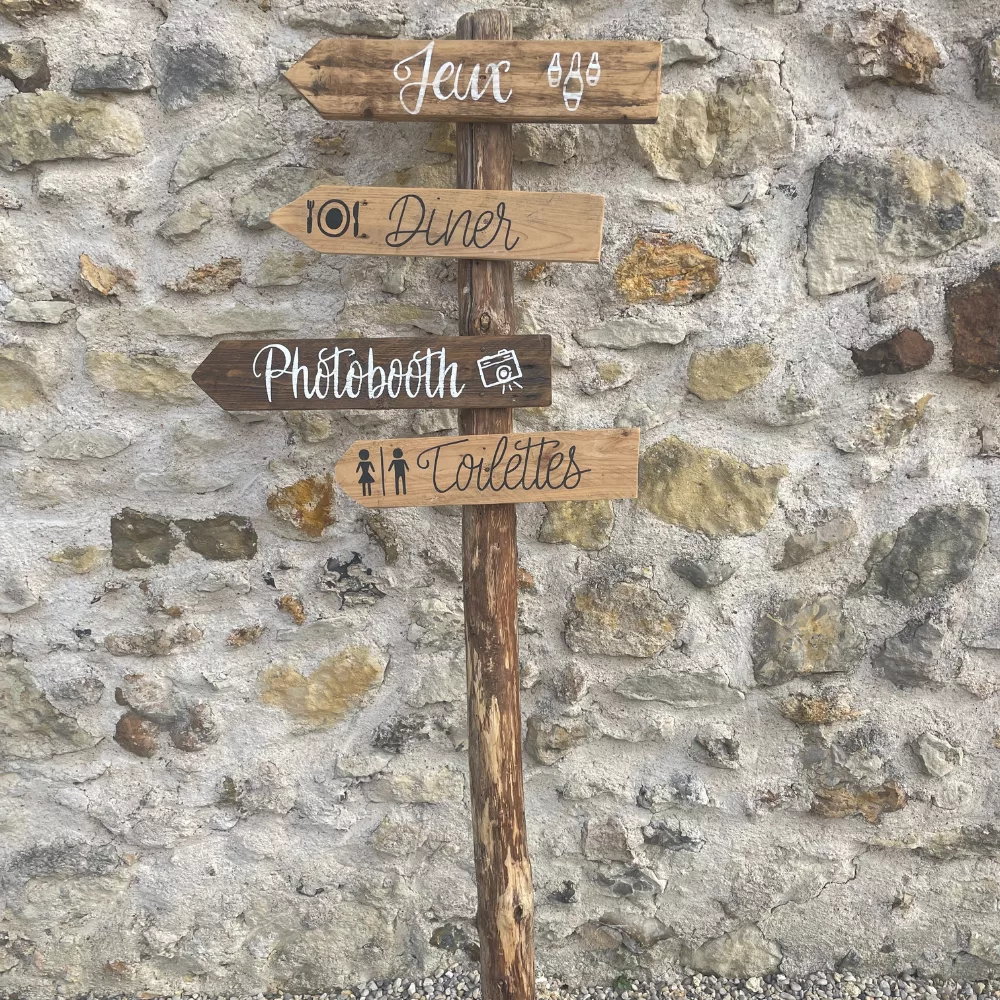 Jeux
Diner
Photobooth
Toilettes